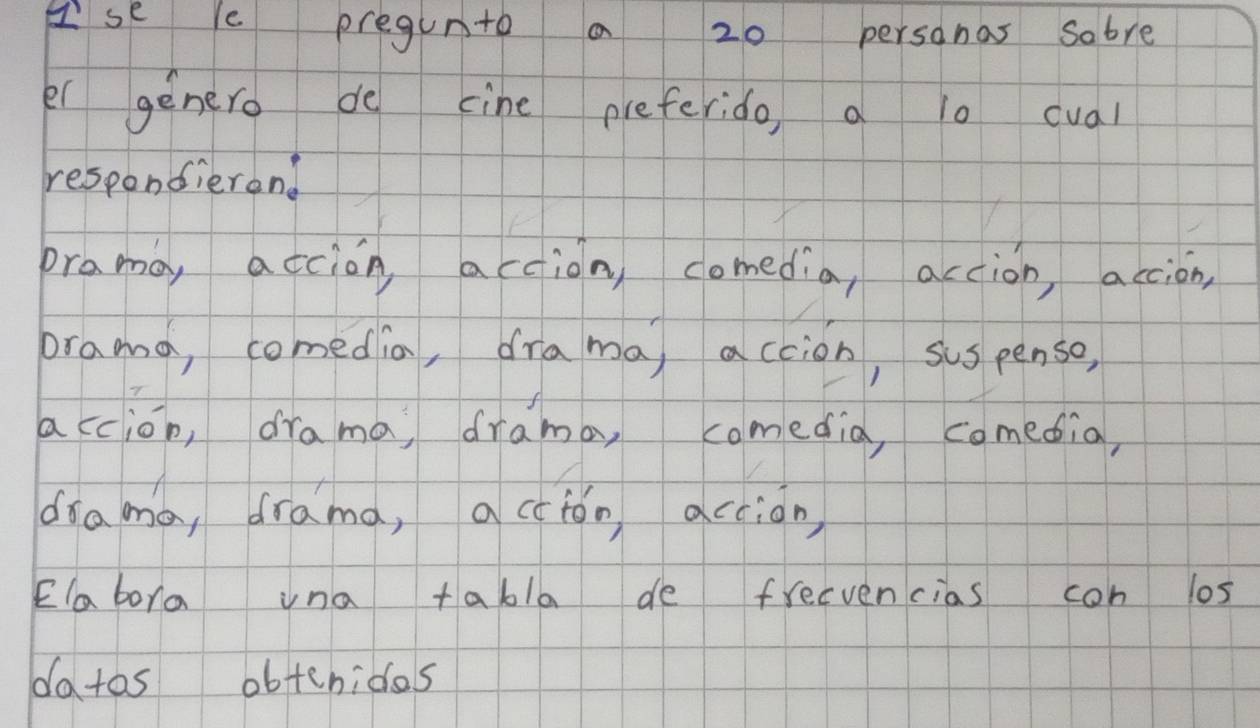 1 se le pregunto a 20 personas sobre
el género de cine preferido, a lo cual
respondieron:
Dramá, acción, acción, comedia, acción, acción,
Dramá, comedia, dramá, acción, suspenso,
acción, drama, dráma, comedia, comedia,
dramá, dráma, acción, acción,
Elabora una tabla de frecuencias con los
datos obtenidos